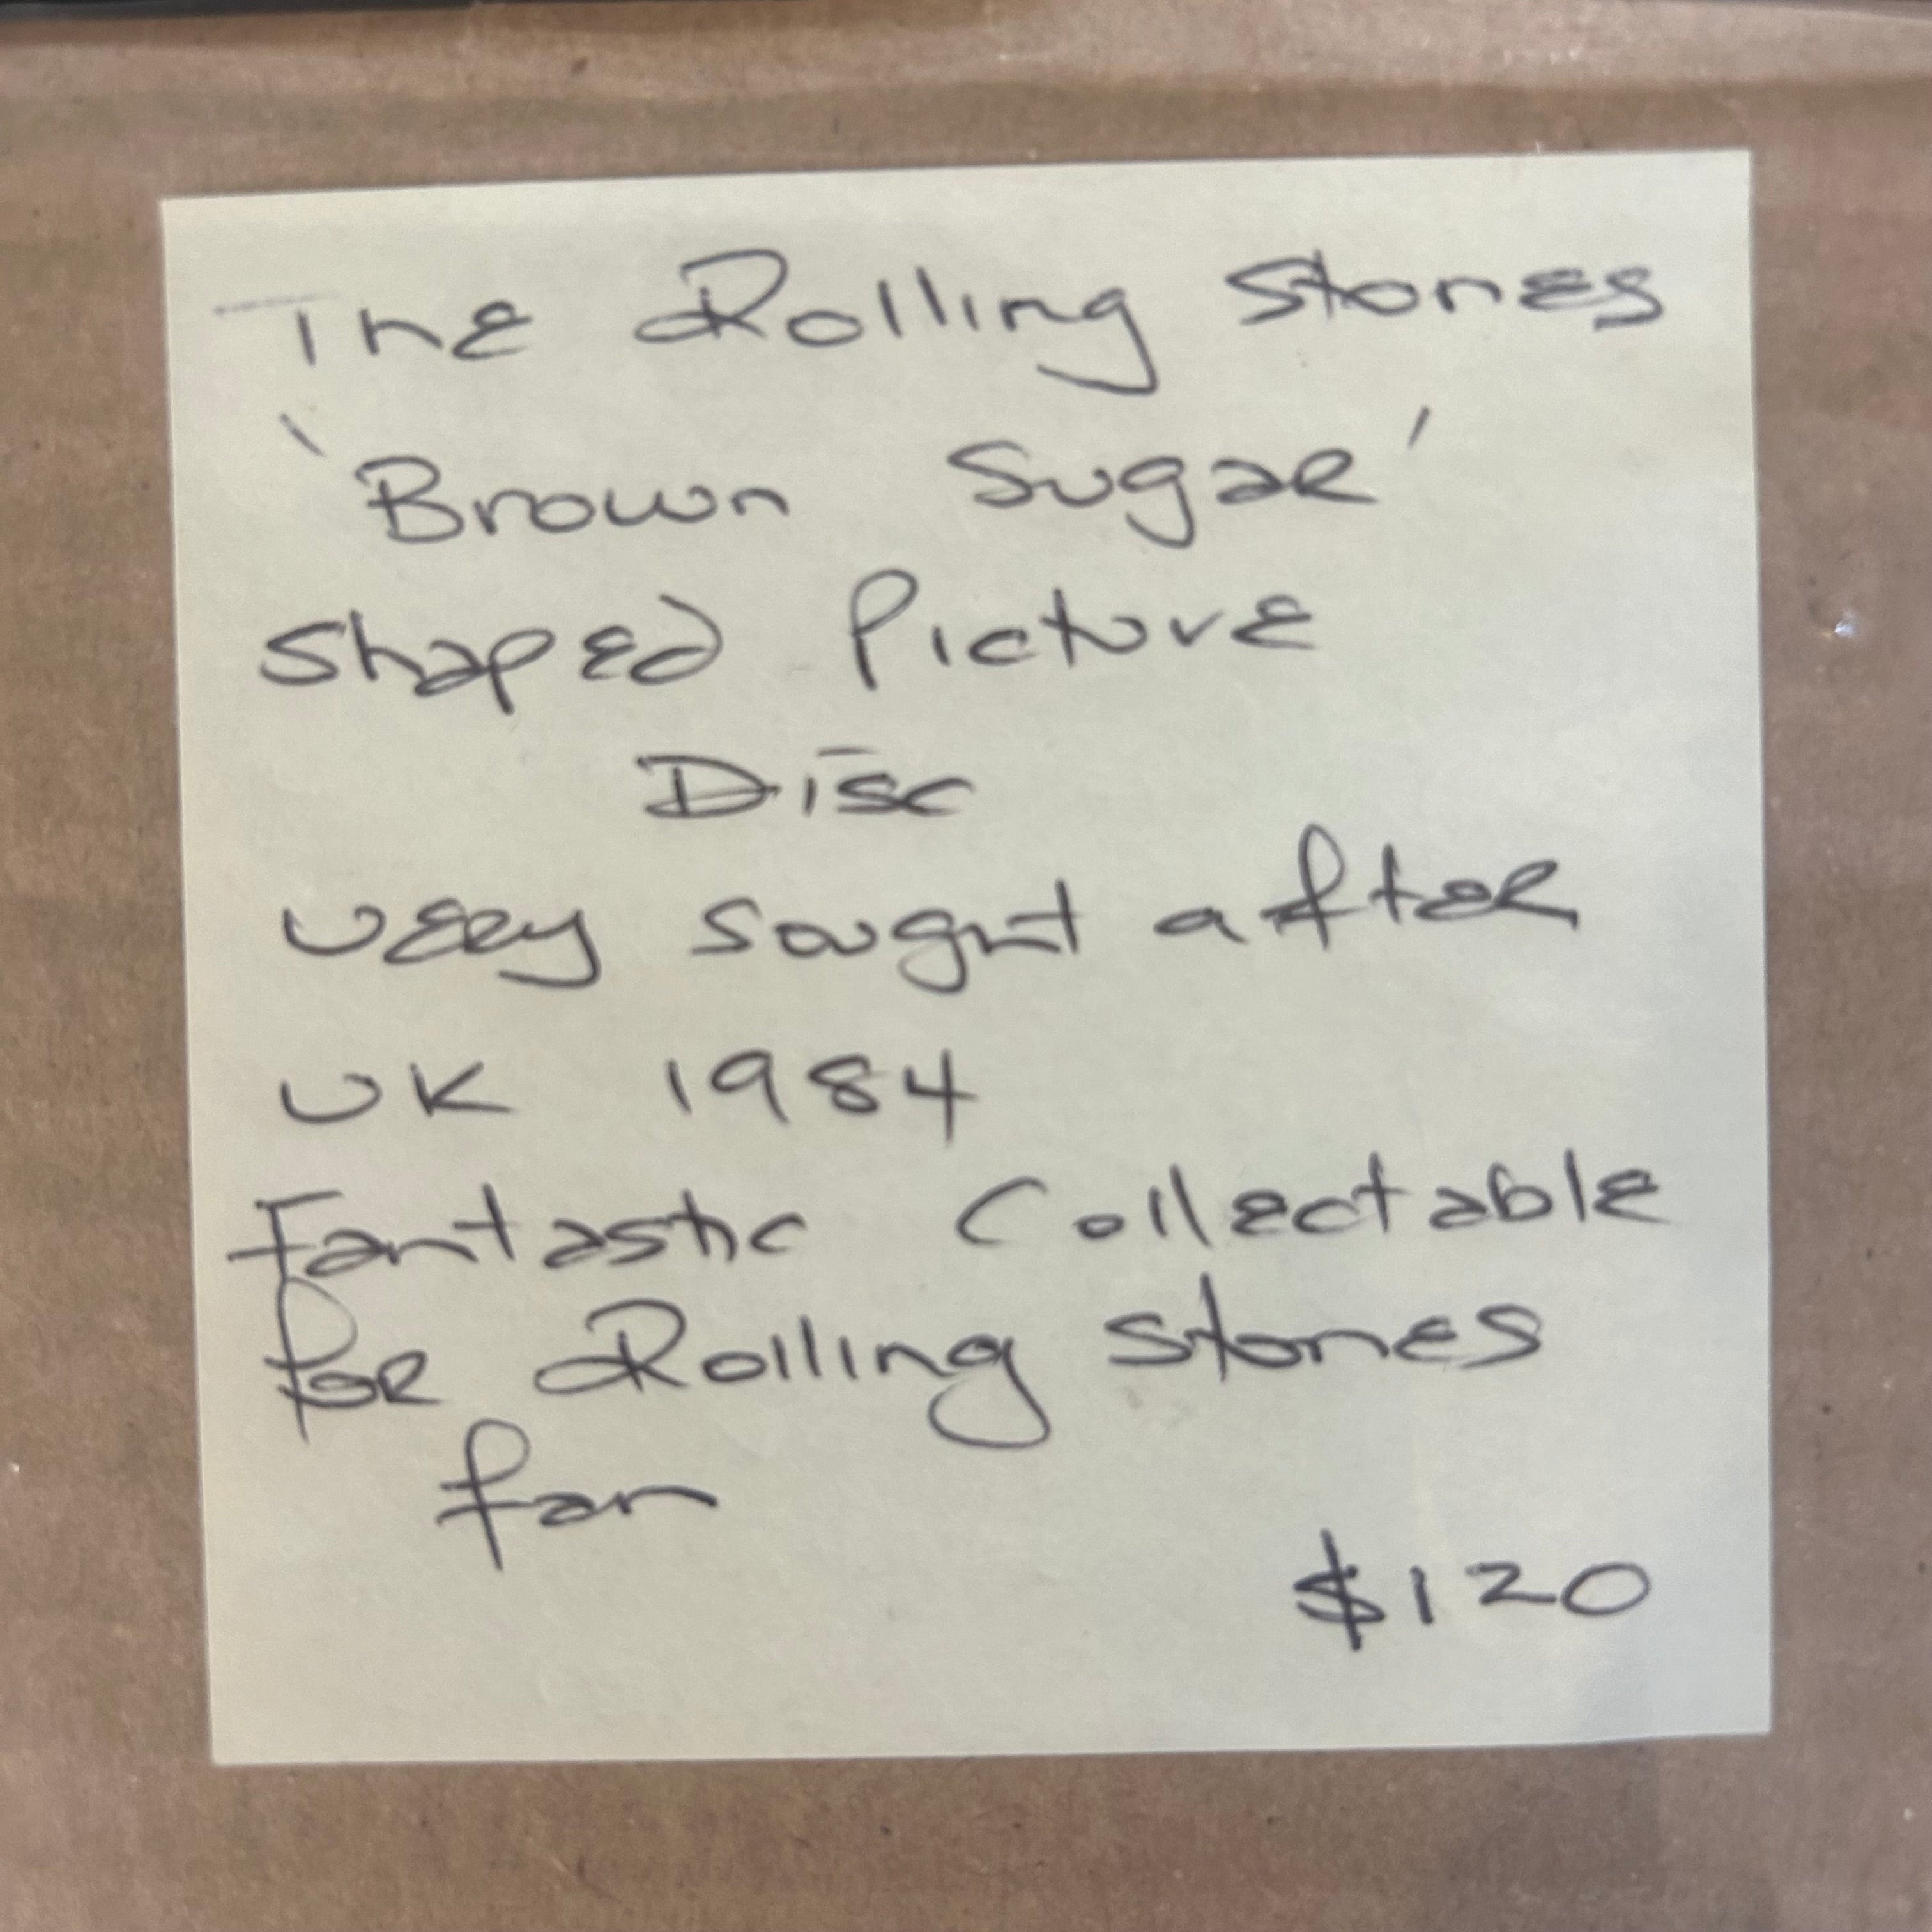 The Rolling Stones
'Brown Sugar'
Shaped Picture
Disc
Very sought after
UK 1984
Fantastic Collectable
for Rolling Stones
fan
$120